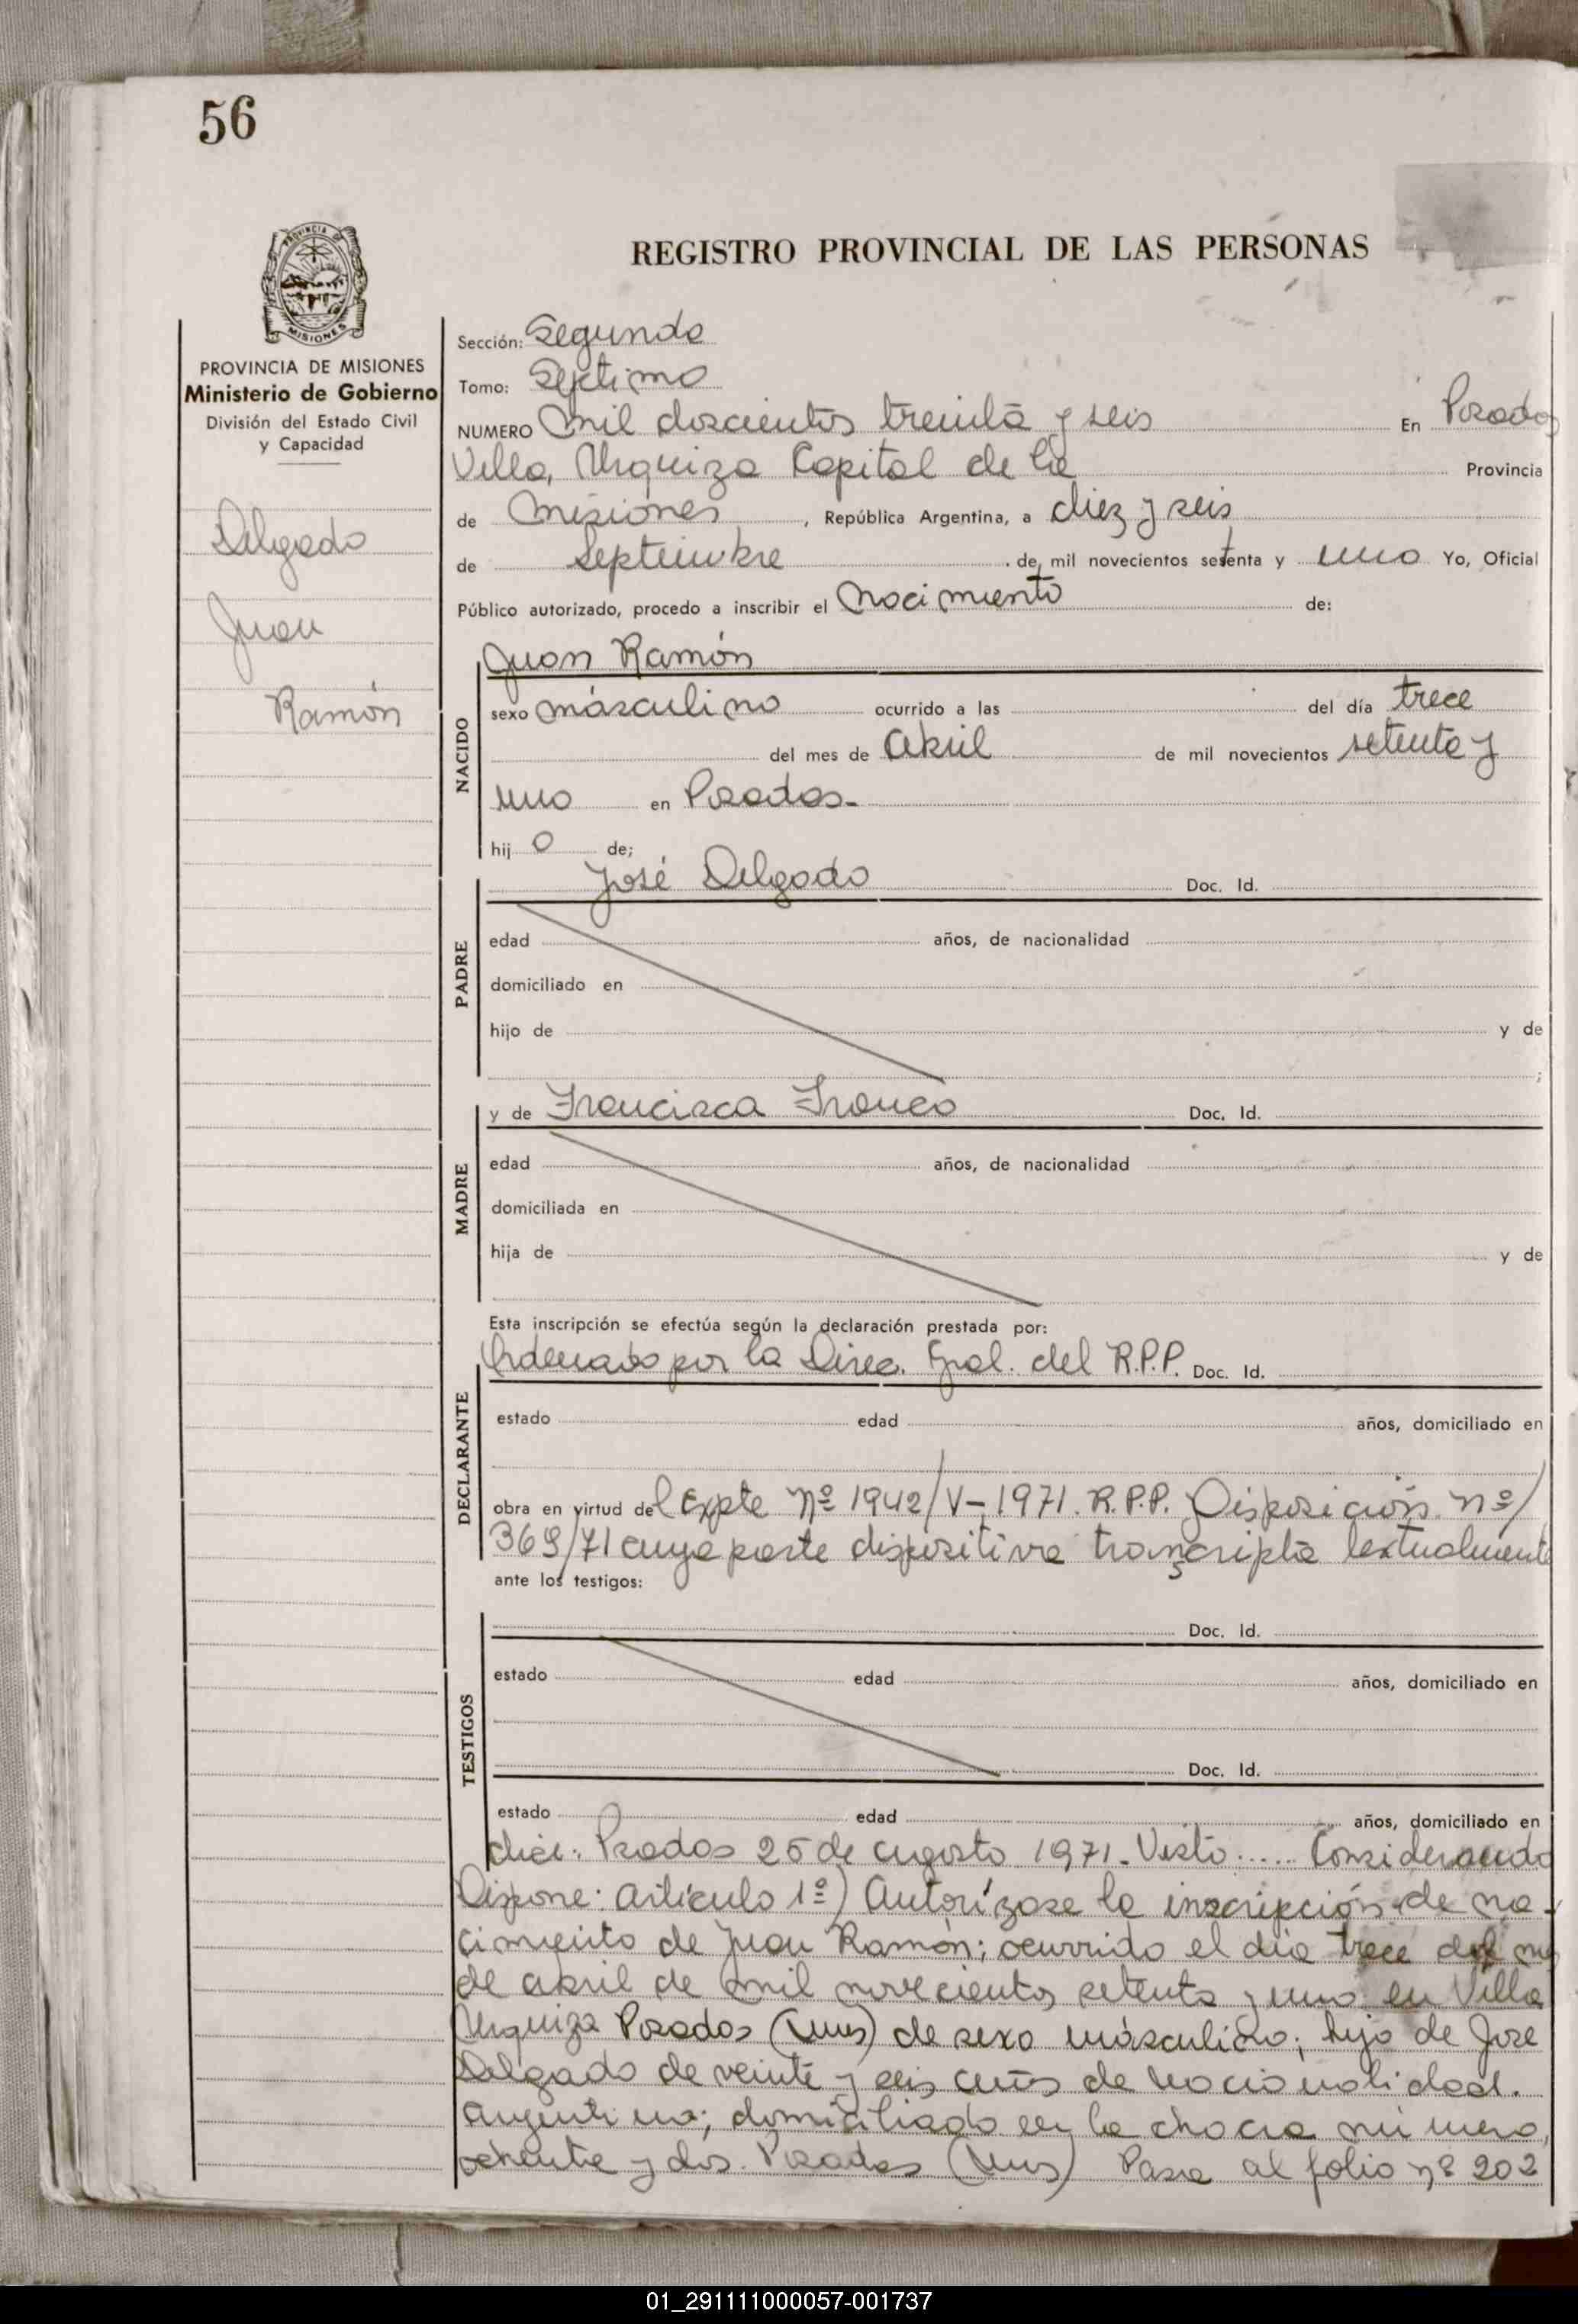 56
PROVINCIA DE
MISIONES
REGISTRO PROVINCIAL DE LAS PERSONAS
PROVINCIA DE MISIONES
Ministerio de Gobierno
División del Estado Civil
y Capacidad
Delgado
Juan
Ramón
Sección: Segunda
Tomo: Septimo
NUMERO Mil doscientos treinta y seis En Posadas
Villa, Urquiza Capital de la Provincia
de Misiones, República Argentina, a diez y seis
de Septiembre de mil novecientos setenta y uno Yo, Oficial
Público autorizado, procedo a inscribir el nacimiento de:
Juan Ramón
NACIDO
sexo másculino ocurrido a las del día trece
del mes de abril de mil novecientos setenta y
uno en Posadas-
hij o de;
PADRE
José Delgado Doc. Id.
edad años, de nacionalidad
domiciliado en
hijo de y de
;
MADRE
y de Francisca Franco Doc. Id.
edad años, de nacionalidad
domiciliada en
hija de y de
DECLARANTE
Esta inscripción se efectúa según la declaración prestada por:
Ordenado por la Direc. Gral. del R.P.P. Doc. Id.
estado edad años, domiciliado en
obra en virtud del Expte Nº 1942/V-1971. R.P.P. Disposición nº/
369/71 cuya parte dispositiva transcripta textualmente
ante los testigos:
TESTIGOS
Doc. Id.
estado edad años, domiciliado en
Doc. Id.
estado edad años, domiciliado en
dice: Posadas 25 de agosto 1971. Visto ..... Considerando
Dispone: artículo 1º) Autorízase la inscripción de na-
cimiento de Juan Ramón; ocurrido el día trece del mes
de abril de mil novecientos setenta y uno en Villa
Urquiza Posadas (Mnes) de sexo másculino; hijo de Jose
Delgado de veinte y seis años de nacionalidad.
argentina; domiciliado en la chacra número,
ochenta y dos. Posadas (Mnes) Pasa al folio nº 202
01_291111000057-001737